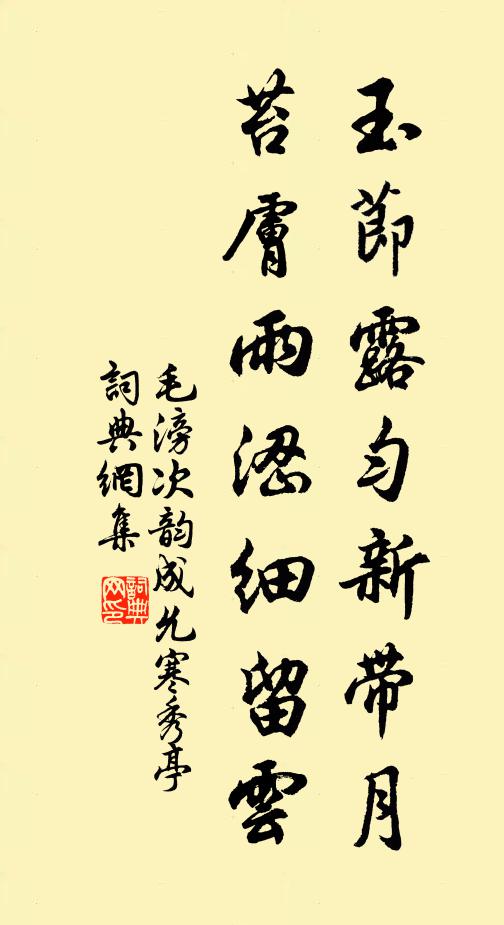 玉節露勻新帶月
苔膚雨澀細留雲
毛滂次韵成允寒秀亭
詞典網集
詞典網印